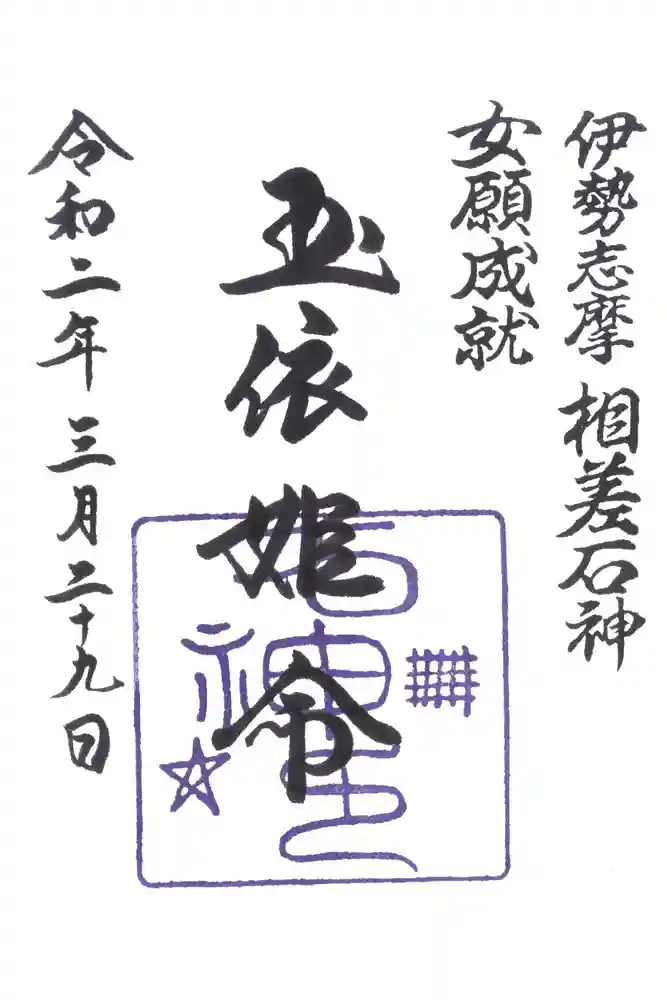 伊勢志摩 相差石神
女願成就
玉依姫命
令和二年 三月二十九日